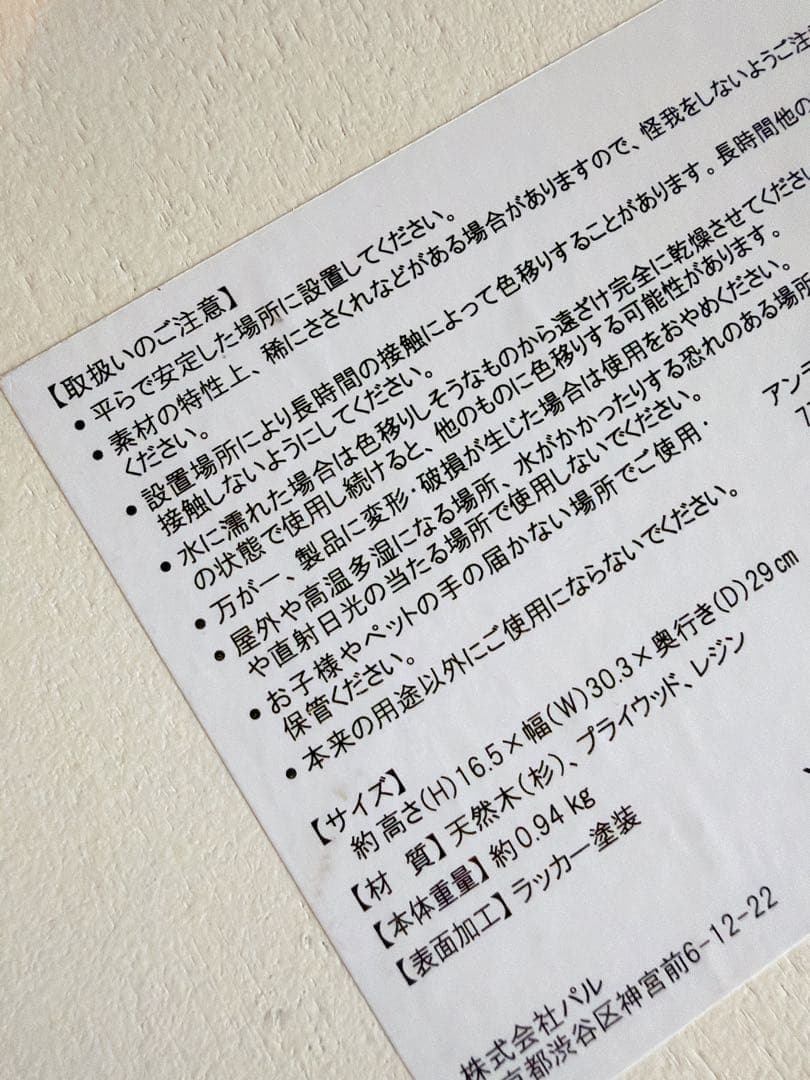 【取扱いのご注意】
● 平らで安定した場所に設置してください。
● 素材の特性上、稀にささくれなどがある場合がありますので、怪我をしないようご注
ください。
● 設置場所により長時間の接触によって色移りすることがあります。長時間他の
接触しないようにしてください。
● 水に濡れた場合は色移りしそうなものから遠ざけ完全に乾燥させてくださ
の状態で使用し続けると、他のものに色移りする可能性があります。
● 万が一、製品に変形・破損が生じた場合は使用をおやめください。
● 屋外や高温多湿になる場所、水がかかったりする恐れのある場所
や直射日光の当たる場所で使用しないでください。
● お子様やペットの手の届かない場所でご使用・
保管ください。
● 本来の用途以外にご使用にならないでください。
アンテ
【サイズ】
約 高さ(H)16.5×幅(W)30.3×奥行き(D)29cm
【材 質】天然木(杉)、プライウッド、レジン
【本体重量】約0.94kg
【表面加工】ラッカー塗装
株式会社パル
京都渋谷区神宮前6-12-22